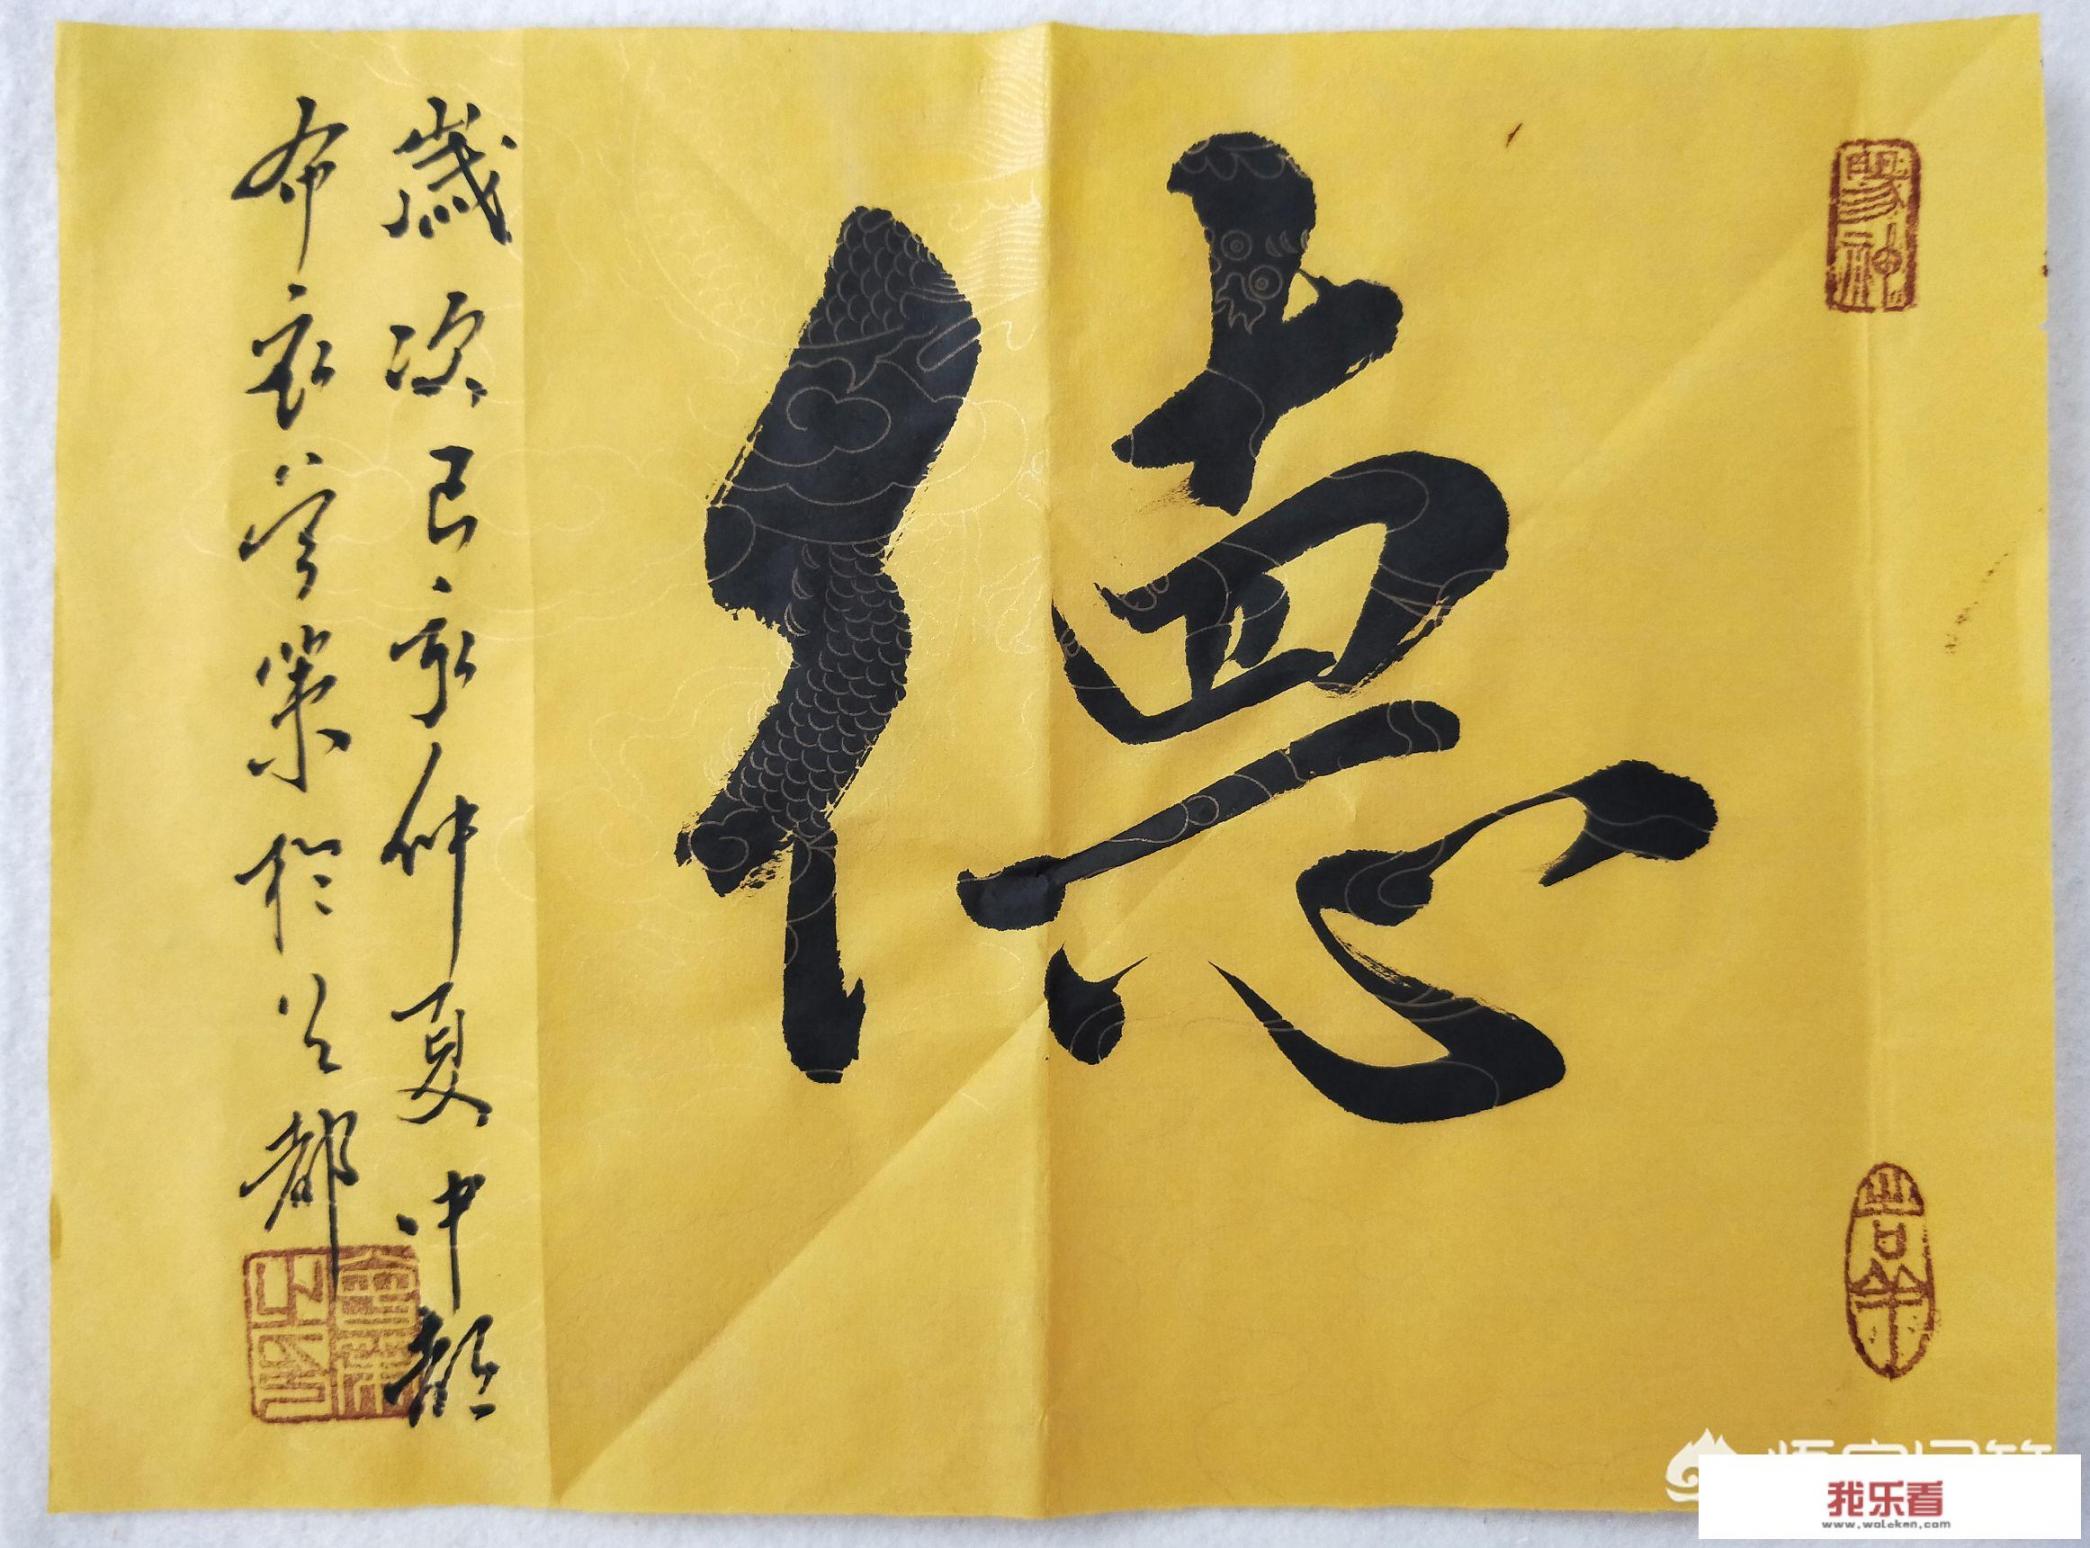 陽神
岩牛
德
歲次己亥仲夏中都
布衣管策於公都
悟空问答
我乐看
www.woleken.com